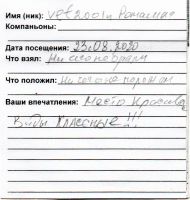 Имя (ник): vet2001и Романмат
Компаньоны:
Дата посещения: 23.08.2020
Что взял: Ничего не брали
Что положил: Ничего не положили
Ваши впечатления: Место Красивое
Виды Классные!!!